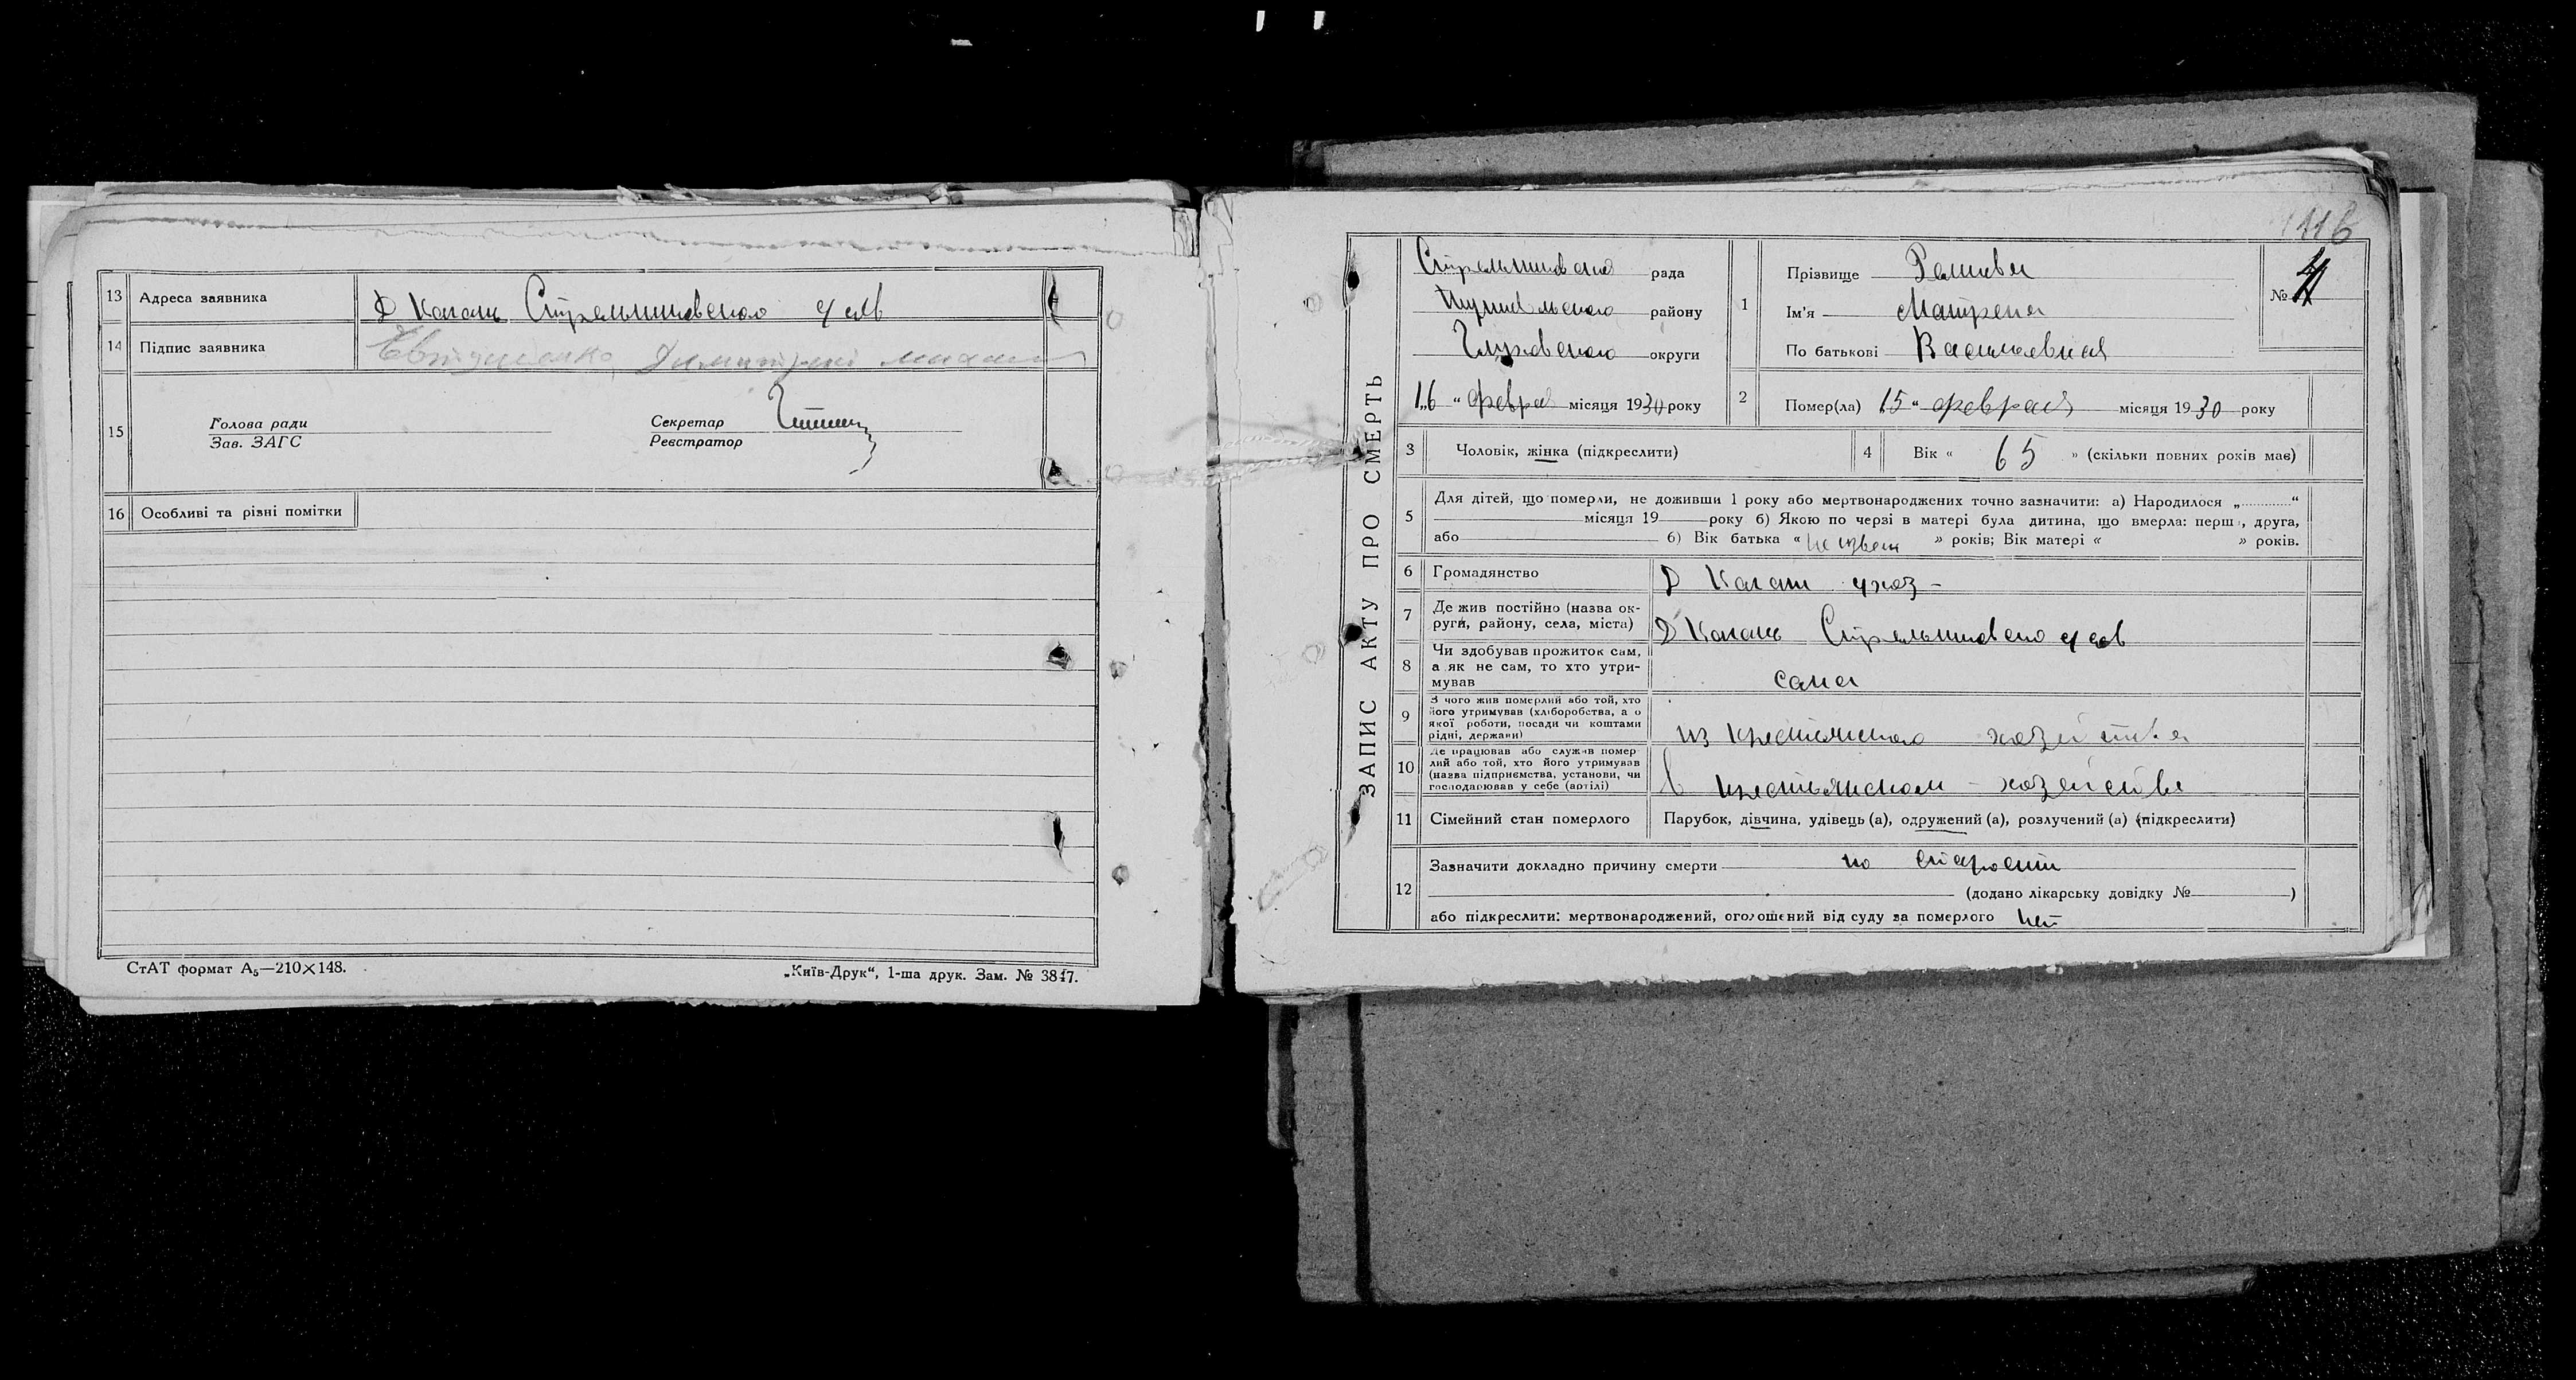 13 Адреса заявника Д Кагань Стрельниковского с/сов
14 Підпис заявника Евтушенко
15 Голова ради
Зав. ЗАГС
Секретар
Реєстратор
16 Особливі та різні помітки
СтАТ формат А₅—210×148.
„Київ-Друк“, 1-ша друк. Зам. № 3847.
116
ЗАПИС АКТУ ПРО СМЕРТЬ
рада
Путивльского району
Глуховского округи
„16“ февраля місяця 1930 року
1 Прізвище
Ім'я Матрена
По батькові Васильевная
№ 4
2 Помер(ла) „15“ февраля місяця 1930 року
3 Чоловік, жінка (підкреслити)
4 Вік « 65 » (скільки повних років має)
5 Для дітей, що померли, не доживши 1 року або мертвонароджених точно зазначити: а) Народилося „............“
місяця 19 року б) Якою по черзі в матері була дитина, що вмерла: перша, друга,
або б) Вік батька « неизвест » років; Вік матері « » років.
6 Громадянство
7 Де жив постійно (назва ок-
руги, району, села, міста) Д Кагань Стрельниковского с/сов
8 Чи здобував прожиток сам,
а як не сам, то хто утри-
мував сама
9 З чого жив померлий або той, хто
його утримував (хліборобства, а о
якої роботи, посади чи коштами
рідні, держави) из крестьянского хозяйства
10 Де працював або служив помер
лий або той, хто його утримував
(назва підприємства, установи, чи
господарював у себе (артілі) в крестьянском хозяйстве
11 Сімейний стан померлого Парубок, дівчина, удівець (а), одружений (а), розлучений (а) (підкреслити)
12 Зазначити докладно причину смерти по старости
(додано лікарську довідку № )
або підкреслити: мертвонароджений, оголошений від суду за померлого нет